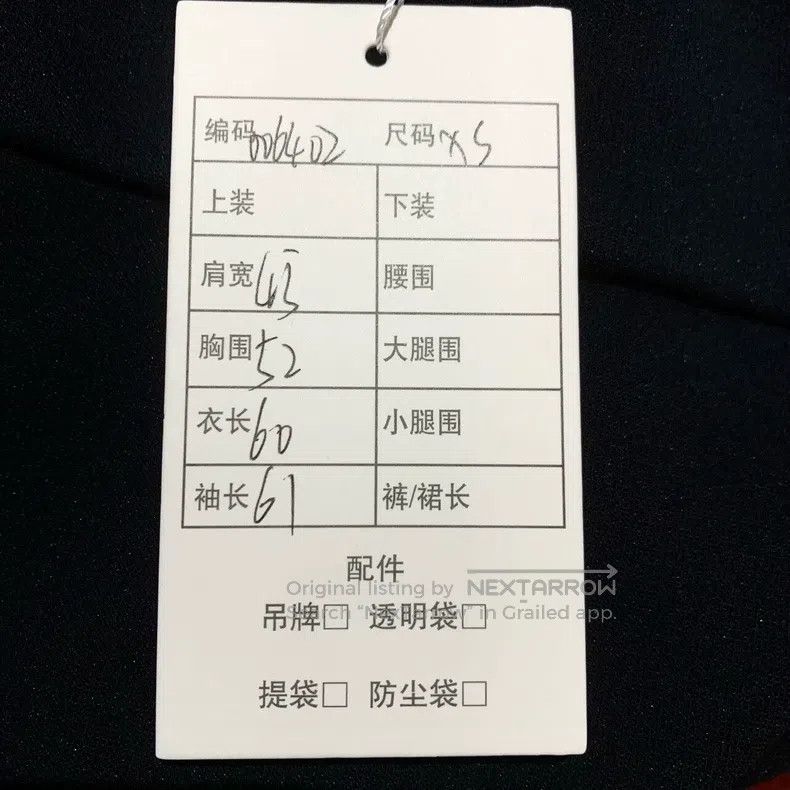 编码 006402 尺码 XS
上装 下装
肩宽 43 腰围
胸围 52 大腿围
衣长 60 小腿围
袖长 61 裤/裙长
配件
Original listing by NEXTARROW
吊牌□ 透明袋□
Search “NextArrow” in Grailed app.
提袋□ 防尘袋□